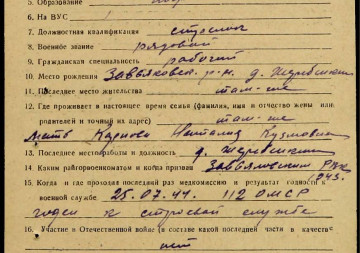 5. Образование
6. На ВУС
7. Должностная квалификация стрелок
8. Военное звание рядовой
9. Гражданская специальность рабочий
10. Место рождения Завьяловск. р-н. д.
11. Последнее место жительства там-же
12. Где проживает в настоящее время семья (фамилия, имя и отчество жены или
родителей и точный их адрес) там-же
мать Наталия Кузмовна
13. Последнее место работы и должность д.
14. Каким райгорвоенкоматом и когда призван Завьяловским РВК
1943.
15. Когда и где проходил последний раз медкомиссию и результат годности к
военной службе 25.07.44. 112 ОМСР
годен к строевой службе
16. Участие в Отечественной войне (в составе какой последней части в качестве
нет